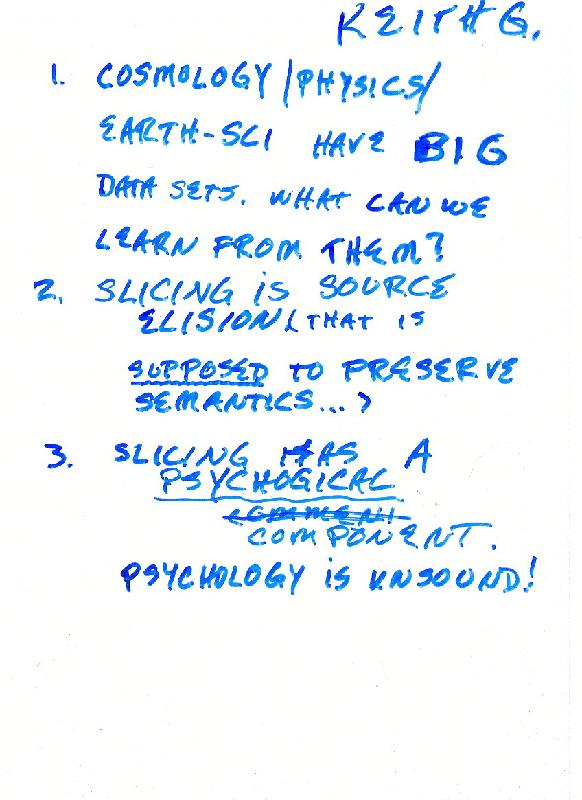 KEITH G.
1. COSMOLOGY/PHYSICS/
EARTH-SCI HAVE BIG
DATA SETS. WHAT CAN WE
LEARN FROM THEM?
2. SLICING IS SOURCE
ELISION (THAT IS
SUPPOSED TO PRESERVE
SEMANTICS...)
3. SLICING HAS A
PSYCHOGICAL
COMPONENT.
PSYCHOLOGY IS UNSOUND!